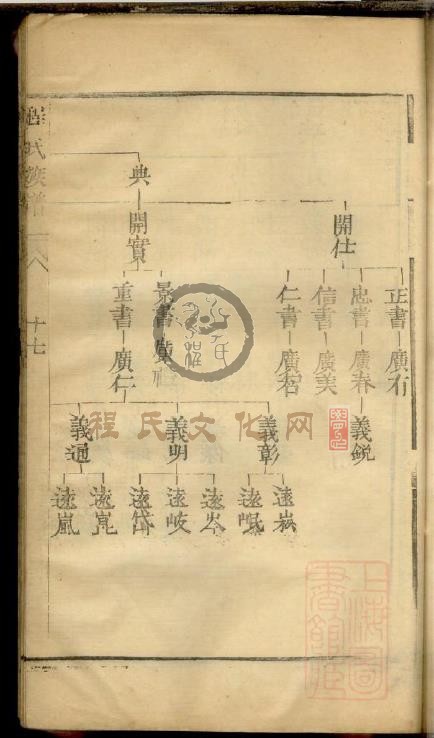 氏族譜
十七
典
開實
開仕
正書 廣有
忠書 廣春 義銳
信書 廣美
仁書 廣
景書 廣
重書 廣仁
義彰
義明
義通
遠
遠岷
遠岑
遠岐
遠岱
遠崑
遠嵐
程氏文化网
上海圖書館藏